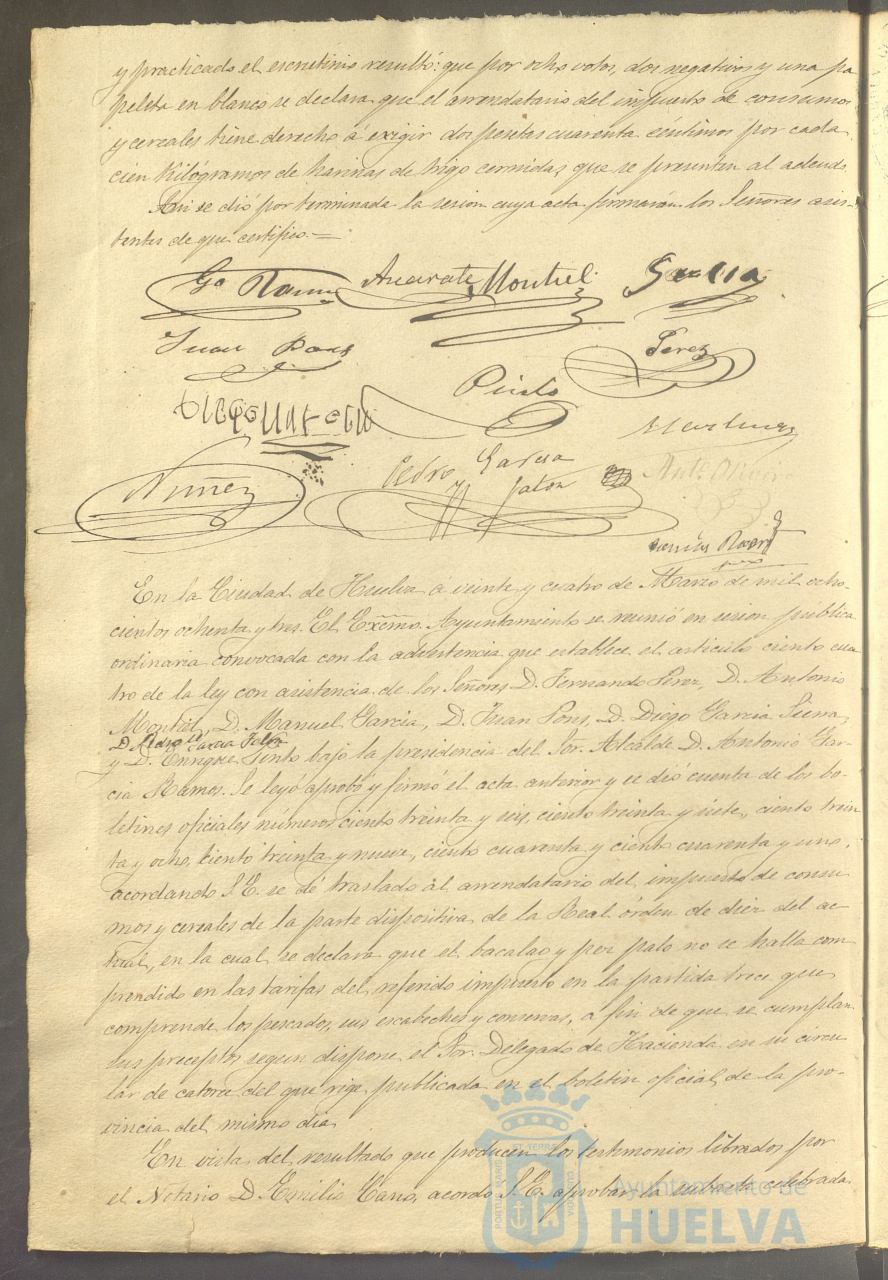 y practicado el escrutinio resultó: que por ocho votos, dos negativos y una pa
peleta en blanco se declara que el arrendatario del impuesto de consumos
y cereales tiene derecho á exigir dos pesetas cuarenta céntimos por cada
cien kilógramos de harinas de trigo cernidas, que se presenten al adeudo.
Asi se dió por terminada la sesion cuya acta firmarán los Señores asis-
tentes de que certifico.=
Ga Ramos Montiel Garcia
Juan Pons Perez
Pinto
Martinez
Pedro Garcia
Nuñez Jalon
En la Ciudad de Huelva á veinte y cuatro de Marzo de mil ocho-
cientos ochenta y tres. El Excmo. Ayuntamiento se reunió en sesion pública
ordinaria convocada con la advertencia que establece el artículo ciento cua
tro de la ley con asistencia de los Señores D. Fernando Perez, D. Antonio
Montiel, D. Manuel Garcia, D. Juan Pons, D. Diego Garcia Sierra,
D. Pedro Garcia Jalon
y D. Enrique Pinto bajo la presidencia del Sor. Alcalde D. Antonio Gar-
cia Ramos. Se leyó aprobó y firmó el acta anterior y se dió cuenta de los bo-
letines oficiales números ciento treinta y seis, ciento treinta y siete, ciento trein
ta y ocho, ciento treinta y nueve, ciento cuarenta y ciento cuarenta y uno,
acordando S. E. se dé traslado al arrendatario del impuesto de consu
mos y cereales de la parte dispositiva de la Real órden de diez del ac-
tual, en la cual se declara que el bacalao y pez palo no se halla com-
prendido en las tarifas del referido impuesto en la partida trece que
comprende los pescados, sus escabeches y conservas, á fin de que se cumplan
sus preceptos segun dispone el Sor. Delegado de Hacienda en su circu
lar de catorce del que rige publicada en el boletin oficial de la pro-
vincia del mismo dia.
En vista del resultado que producen los testimonios librados por
el Notario D. Emilio Cano, acordó S. E. aprobar la subasta celebrada
Ayuntamiento de
HUELVA